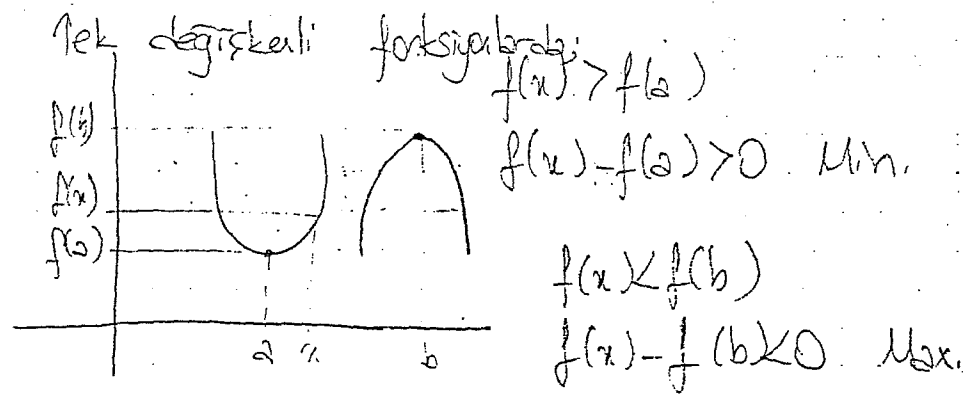 Tek değişkenli fonksiyonlarda;
f(x) > f(a)
f(b)
f(x) - f(a) > 0 Min.
f(x)
f(a)
f(x) < f(b)
a x b
f(x) - f(b) < 0 Max.